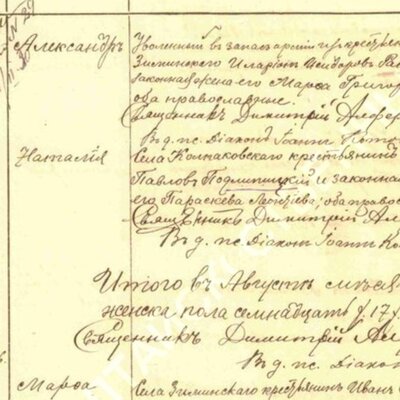 Александръ
Уволенный въ запасъ арміи изъ крестьян
Зиминскаго Иларіонъ Исидоровъ
законная жена его Марѳа Григор
оба православные.
Священникъ Димитрій Алфер
Въ д. пс. Діаконъ Іоаннъ
Наталія
Села Колпаковскаго крестьянинъ
Павловъ Подлипицкій и законная
его Параскева Леонтіева; оба правос
Священникъ Димитрій Ал
Въ д. пс. Діаконъ Іоаннъ К
Итого въ Августѣ мѣсяц
женска пола семнадцать /17/
Священникъ Димитрій Ал
Въ д. пс. Діакон
Марѳа
Села Зиминскаго крестьянинъ Иванъ